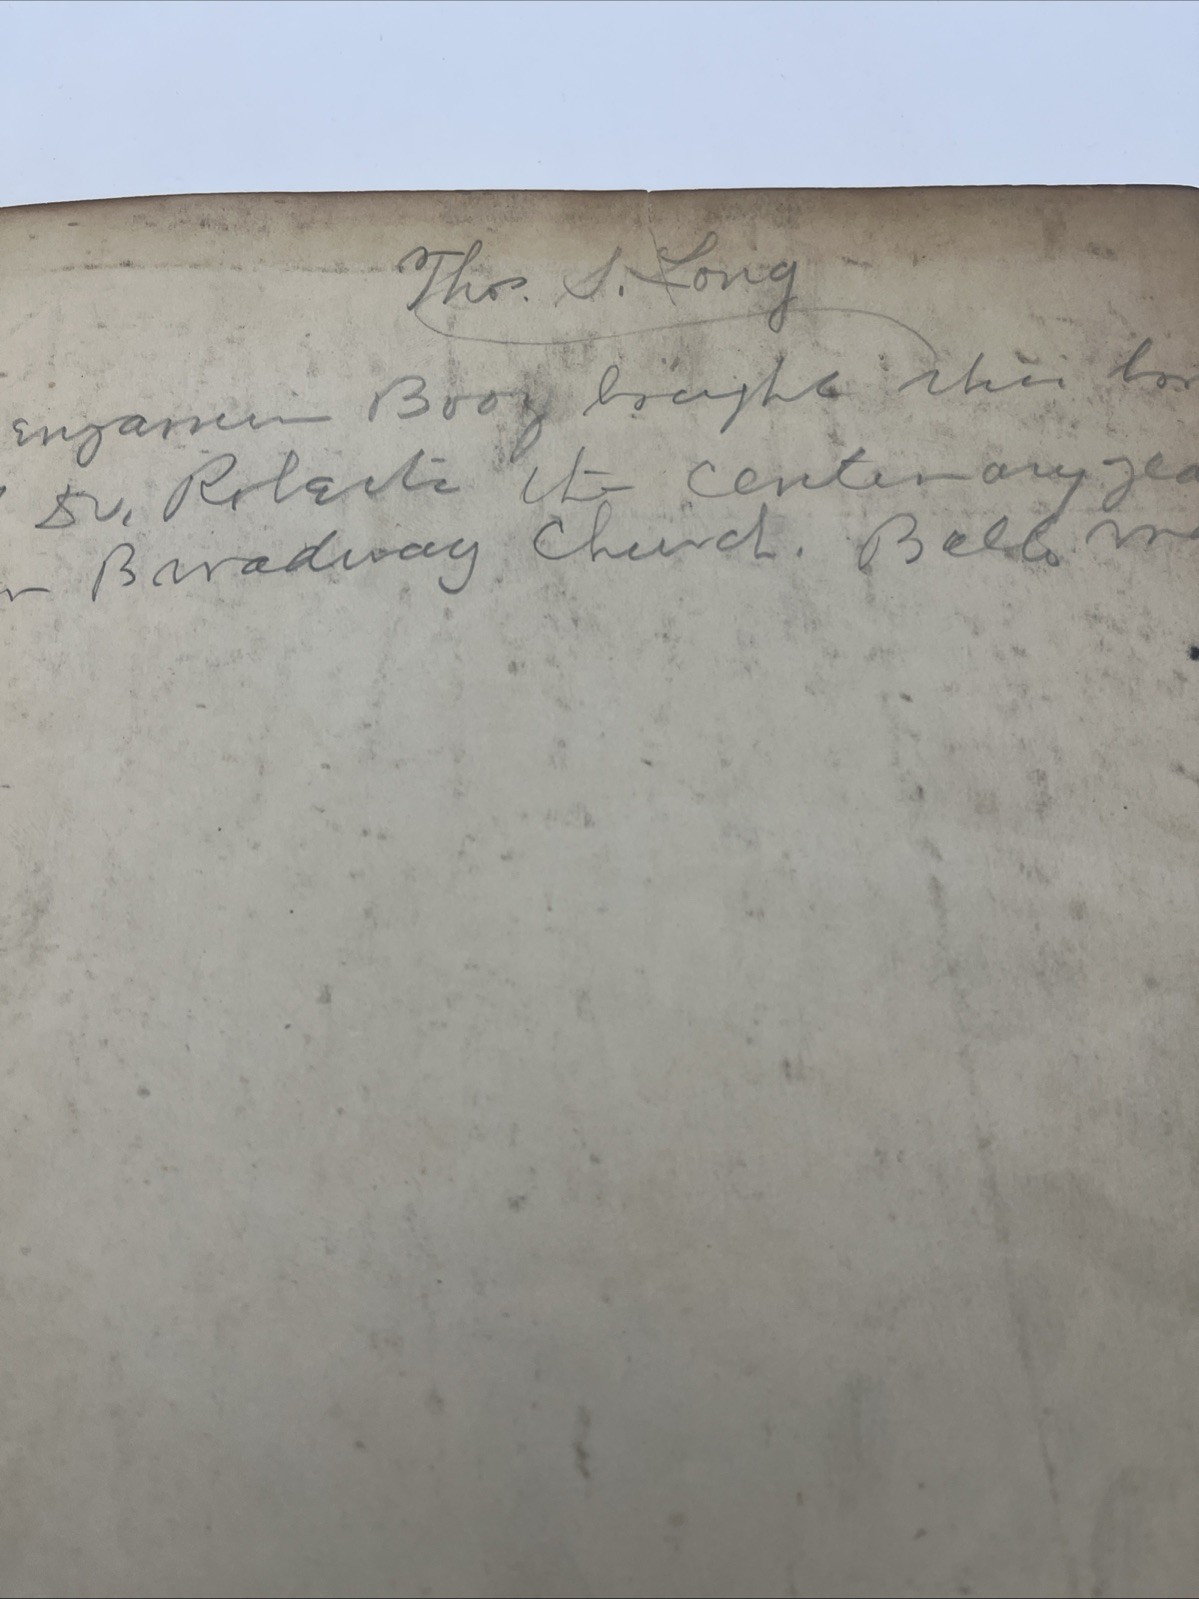 Thos. S. Long
enjamin Booz bought this boo
Dr. Roberts the centenary yea
Broadway Church. Balto. M